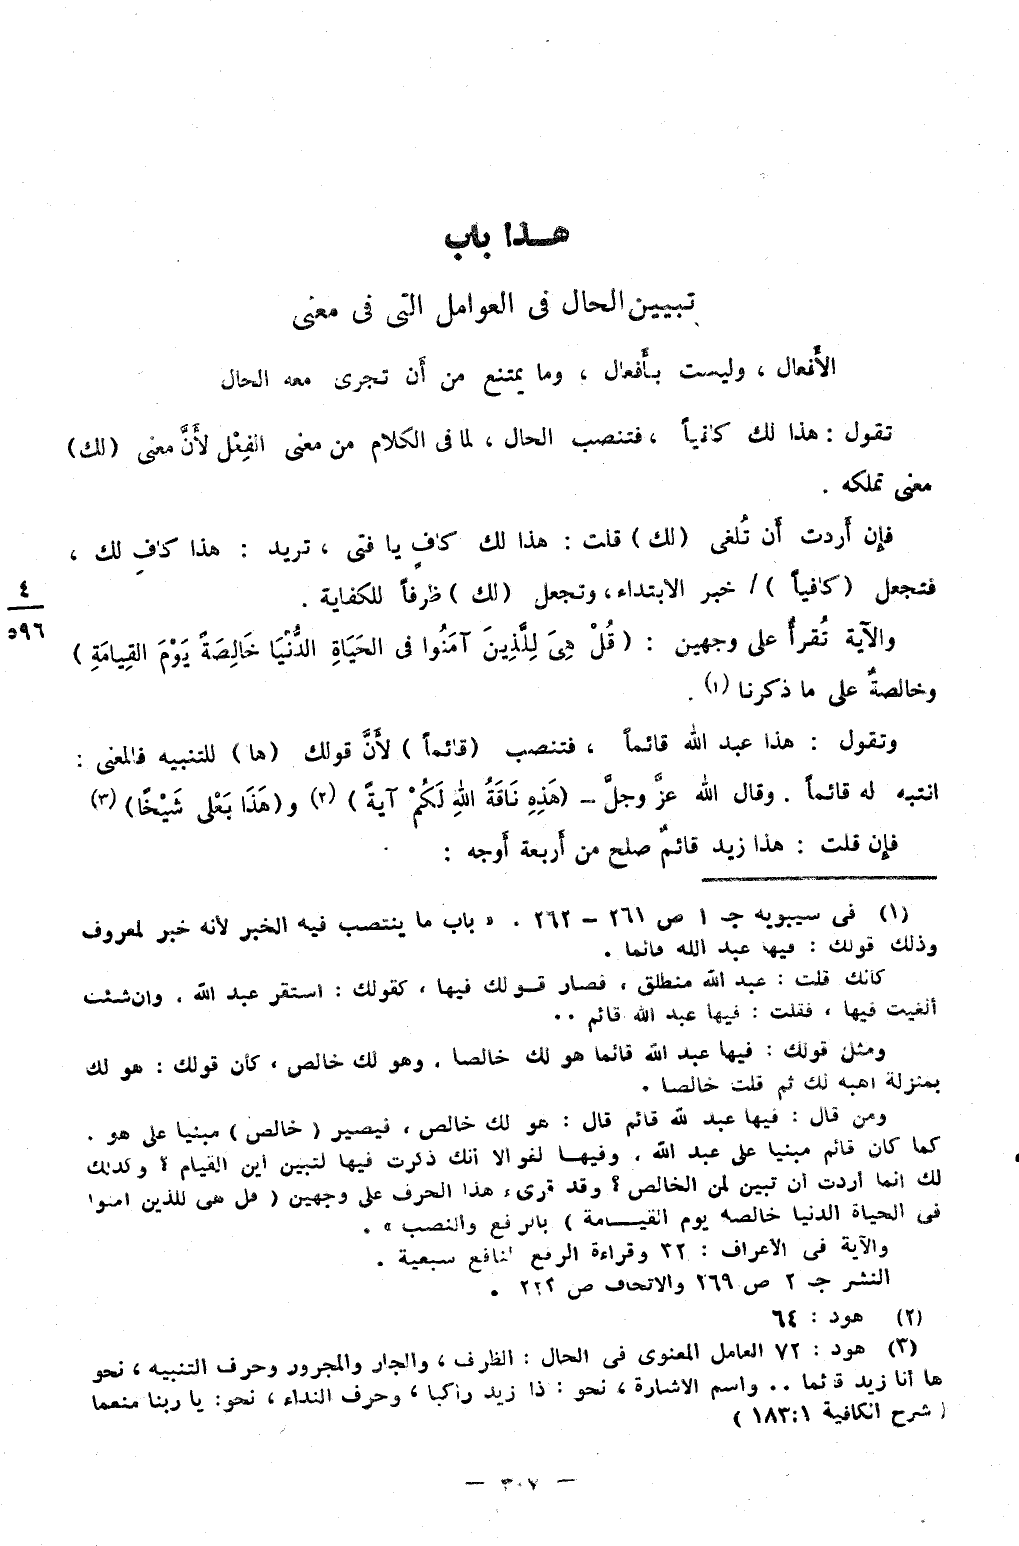 هــذا باب
تبيين الحال فى العوامل التى فى معنى
الأَفعال ، وليست بأَفعال ، وما يمتنع من أَن تجرى معه الحال
تقول : هذا لك كافياً ، فتنصب الحال ، لما فى الكلام من معنى الفِعْل لأَنَّ معنى (لك)
معنى تملكه .
فإِن أَردت أَن تُلغى (لك) قلت : هذا لك كافٍ يا فتى ، تريد : هذا كافٍ لك ،
فتجعل (كافياً) / خبر الابتداء، وتجعل (لك) ظرفاً للكفاية .
٤
٥٩٦
والآية تُقرأُ على وجهين : (قُلْ هِىَ لِلَّذِينَ آمَنُوا فى الحَيَاةِ الدُّنْيَا خَالِصَةً يَوْمَ القِيامَةِ)
وخالصةٌ على ما ذكرنا (١) .
وتقول : هذا عبد الله قائماً ، فتنصب (قائماً) لأَنَّ قولك (ها) للتنبيه فالمعنى :
انتبه له قائماً . وقال الله عزَّ وجلَّ – (هَذِهِ نَاقَةُ اللهِ لَكُمْ آيةً) (٢) و(هَذَا بَعْلى شَيْخًا) (٣)
فإِن قلت : هذا زيد قائمٌ صلح من أَربعة أَوجه :
(١) فى سيبويه جـ ١ ص ٢٦١ – ٢٦٢ . « باب ما ينتصب فيه الخبر لأنه خبر لمعروف
وذلك قولك : فيها عبد الله قائما .
كأنك قلت : عبد الله منطلق ، فصار قــولك فيها ، كقولك : استقر عبد الله . وان شئت
ألغيت فيها ، فقلت : فيها عبد الله قائم ..
ومثل قولك : فيها عبد الله قائما هو لك خالصا . وهو لك خالص ، كأن قولك : هو لك
بمنزلة أهبه لك ثم قلت خالصا .
ومن قال : فيها عبد الله قائم قال : هو لك خالص ، فيصير (خالص) مبنيا على هو .
كما كان قائم مبنيا على عبد الله . وفيهــا لغو الا أنك ذكرت فيها لتبين أين القيام ؟ وكذلك
لك انما أردت أن تبين لمن الخالص ؟ وقد قرىء هذا الحرف على وجهين ( قل هى للذين آمنوا
فى الحياة الدنيا خالصة يوم القيـــامة ) بالرفع والنصب » .
والآية فى الأعراف : ٣٢ وقراءة الرفع لنافع سبعية .
النشر جـ ٢ ص ٢٦٩ والاتحاف ص ٢٢٢ .
(٢) هود : ٦٤
(٣) هود : ٧٢ العامل المعنوى فى الحال : الظرف ، والجار والمجرور وحرف التنبيه ، نحو
ها أنا زيد قائما .. واسم الاشارة ، نحو : ذا زيد راكبا ، وحرف النداء ، نحو: يا ربنا منعما
( شرح الكافية ١٨٣:١ )
— ٣٠٧ —